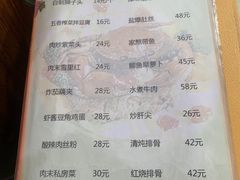 自制狮子头 14元
五香榨菜拌豆腐 16元 盐爆肚丝 48元
肉炒紫菜头 24元 家熬带鱼 36元
肉末雪里红 24元 鲫鱼旱萝卜 45元
炸茄藕夹 28元 水煮牛肉 58元
虾酱豆角鸡蛋 28元 炒肝尖 26元
酸辣肉丝粉 28元 清炖排骨 42元
肉末私房菜 30元 红烧排骨 42元